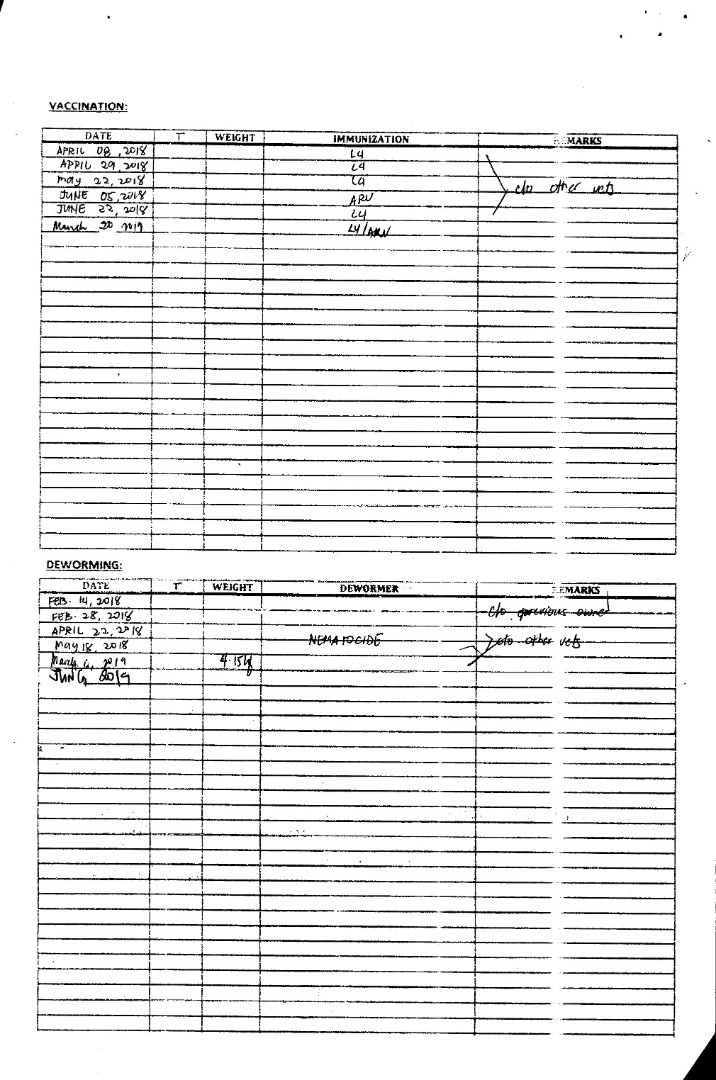 VACCINATION:
DATE T WEIGHT IMMUNIZATION REMARKS
APRIL 08, 2018 L4
APRIL 29, 2018 L4
May 22, 2018 L4 c/o other vets
JUNE 05, 2018 ARV
JUNE 22, 2018 L4
March 20 2019 L4/ARV
DEWORMING:
DATE T WEIGHT DEWORMER REMARKS
FEB. 14, 2018
FEB. 28, 2018 c/o previous owner
APRIL 22, 2018
May 18, 2018 NEMATOCIDE c/o other vets
March 6, 2019 4.15
2019